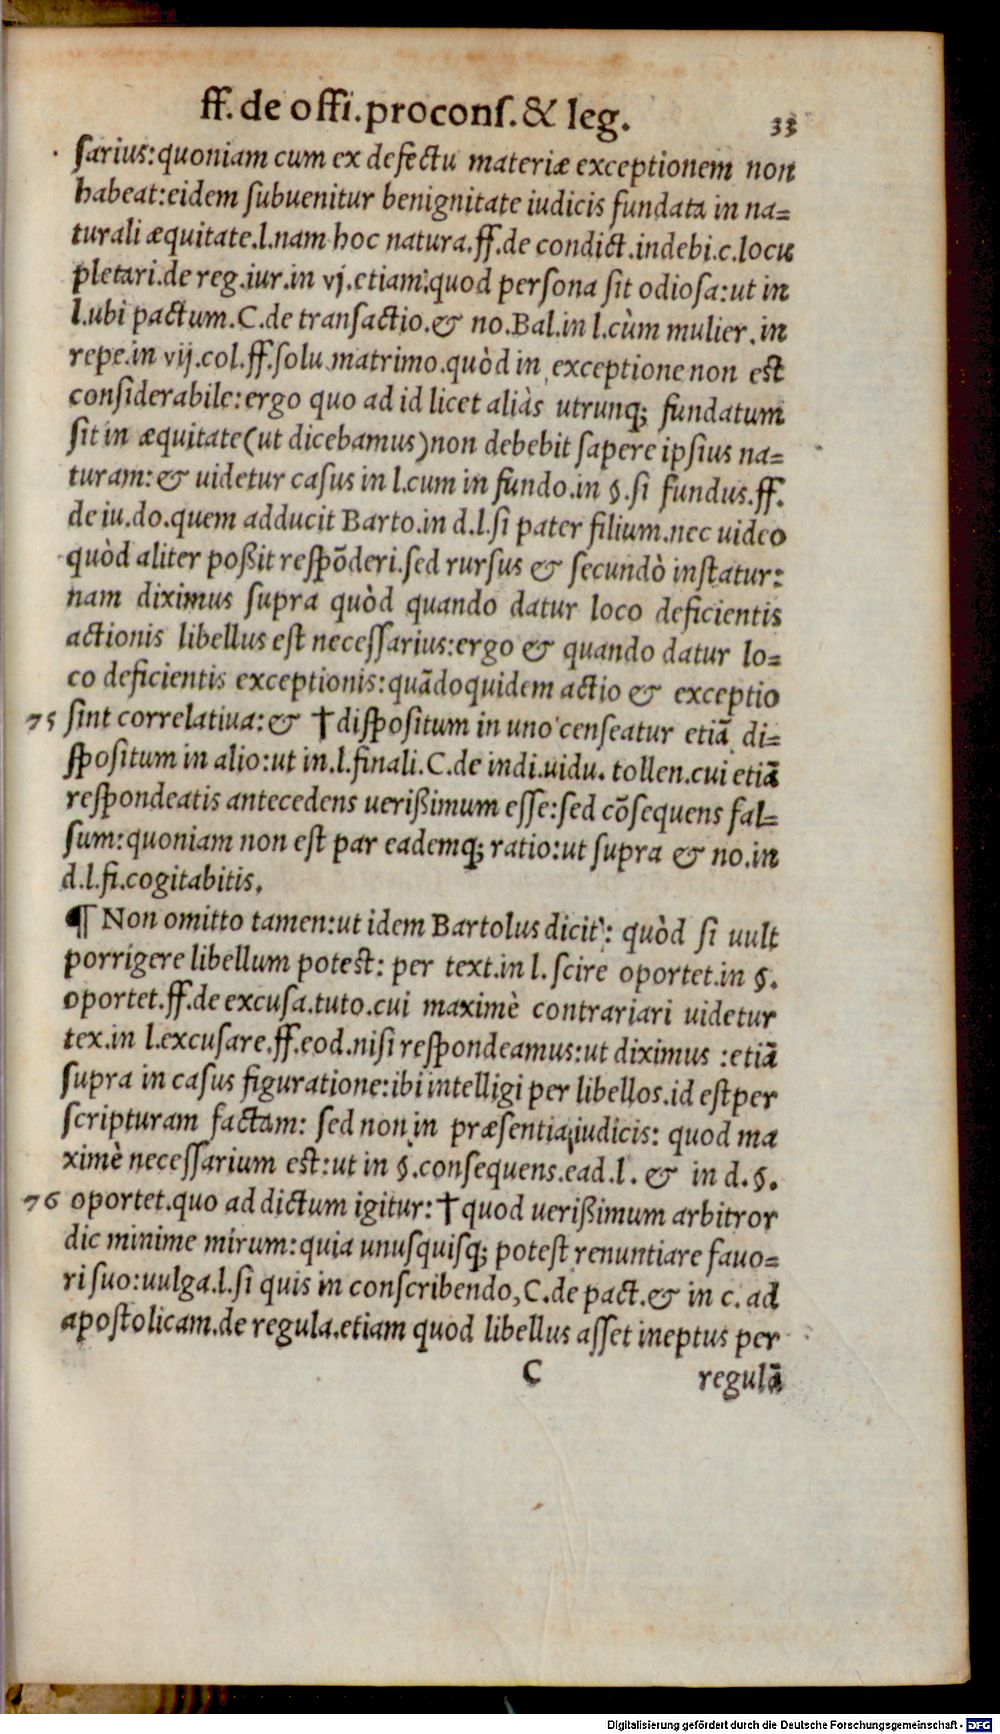 ff. de offi. procons. & leg. 33
sarius: quoniam cum ex defectu materiæ exceptionem non
habeat: eidem subuenitur benignitate iudicis fundata in na=
turali æquitate. l. nam hoc natura. ff. de condict. indebi. c. locu
pletari. de reg. iur. in vj. etiam: quod persona sit odiosa: ut in
l. ubi pactum. C. de transactio. & no. Bal. in l. cùm mulier. in
repe. in vij. col. ff. solu. matrimo. quòd in exceptione non est
considerabile: ergo quo ad id licet aliàs utrunq; fundatum
sit in æquitate (ut dicebamus) non debebit sapere ipsius na=
turam: & uidetur casus in l. cum in fundo. in §. si fundus. ff.
de iu. do. quem adducit Barto. in d. l. si pater filium. nec uideo
quòd aliter poßit respõderi. sed rursus & secundò instatur:
nam diximus supra quòd quando datur loco deficientis
actionis libellus est necessarius: ergo & quando datur lo=
co deficientis exceptionis: quãdoquidem actio & exceptio
75 sint correlatiua: & † dispositum in uno censeatur etiã di=
spositum in alio: ut in. l. finali. C. de indi. uidu. tollen. cui etiã
respondeatis antecedens uerißimum esse: sed cõsequens fal=
sum: quoniam non est par eademq; ratio: ut supra & no. in
d. l. fi. cogitabitis.
¶ Non omitto tamen: ut idem Bartolus dicit: quòd si uult
porrigere libellum potest: per text. in l. scire oportet. in §.
oportet. ff. de excusa. tuto. cui maximè contrariari uidetur
tex. in l. excusare. ff. eod. nisi respondeamus: ut diximus : etiã
supra in casus figuratione: ibi intelligi per libellos. id est per
scripturam factam: sed non in præsentia iudicis: quod ma
ximè necessarium est: ut in §. consequens. ead. l. & in d. §.
76 oportet. quo ad dictum igitur: † quod uerißimum arbitror
dic minime mirum: quia unusquisq; potest renuntiare fauo=
ri suo: uulga. l. si quis in conscribendo, C. de pact. & in c. ad
apostolicam. de regula. etiam quod libellus asset ineptus per
C regulã
Digitalisierung gefördert durch die Deutsche Forschungsgemeinschaft - DFG